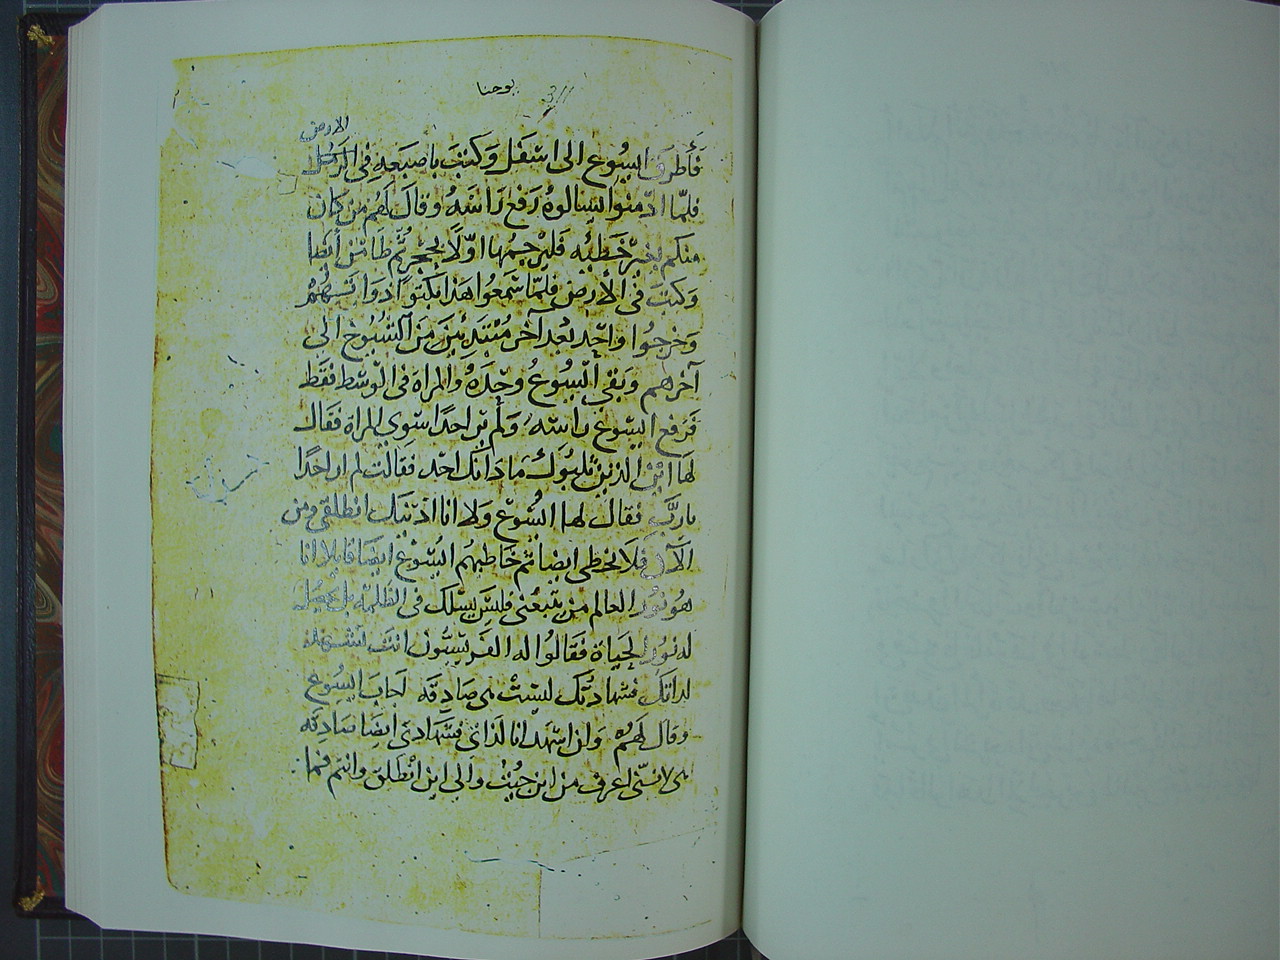 يوحنا 311
الارض
فَأَطرَقَ اليسُوع الى اسْفَل وَكتبَ باصبَعهِ فى
فلمّا ادّمنوا يسَالوهُ رَفع رَاسَهُ وقالَ لهُم من كان
منكم بغَيْر خَطيّه فليَرجمُها اوّلًا بحجر ثُمّ طَامَن ايضا
وَكتبَ فى الأرض فلمّا سَمعُوا هَذا
وَخرجُوا واحِد بَعد آخر مُبْتديْنَ منَ الشيُوخ الى
آخرهم وبَقي اليسُوعُ وحْدَهُ والمراة فى الوَسَط فقَط
فَرَفع اليسُوعَ رَاسَهُ وَلم يَر احدًا سِوى المراة فقَال
لهَا ايْنَ الذينَ ما دَانَك احَد فقَالَت لم ار احَدًا
يا ربّ فقالَ لها اليسُوع وَلا انا اذنبك انطلقى ومن
الآن فَلا تخطى ايضا ثم خَاطبهُم اليسُوع ايضَا قايلا انا
هُو نوُر العالم من يتبعُنى فليسَ يسْلك فى الظلمَه بل
له نوُر الحَياة فقَالوُا له الفَريسيُّون انتَ تشهد
لذاتكَ فشهادتُك ليسَتْ هى صَادِقه اجابَ اليسُوع
وقالَ لهمُ وَلن اشهَد انا لذاتى فشَهادتى ايضَا صَادقه
هى لاننى اعرف من اين جيت والى اين انطلق وانتم فما